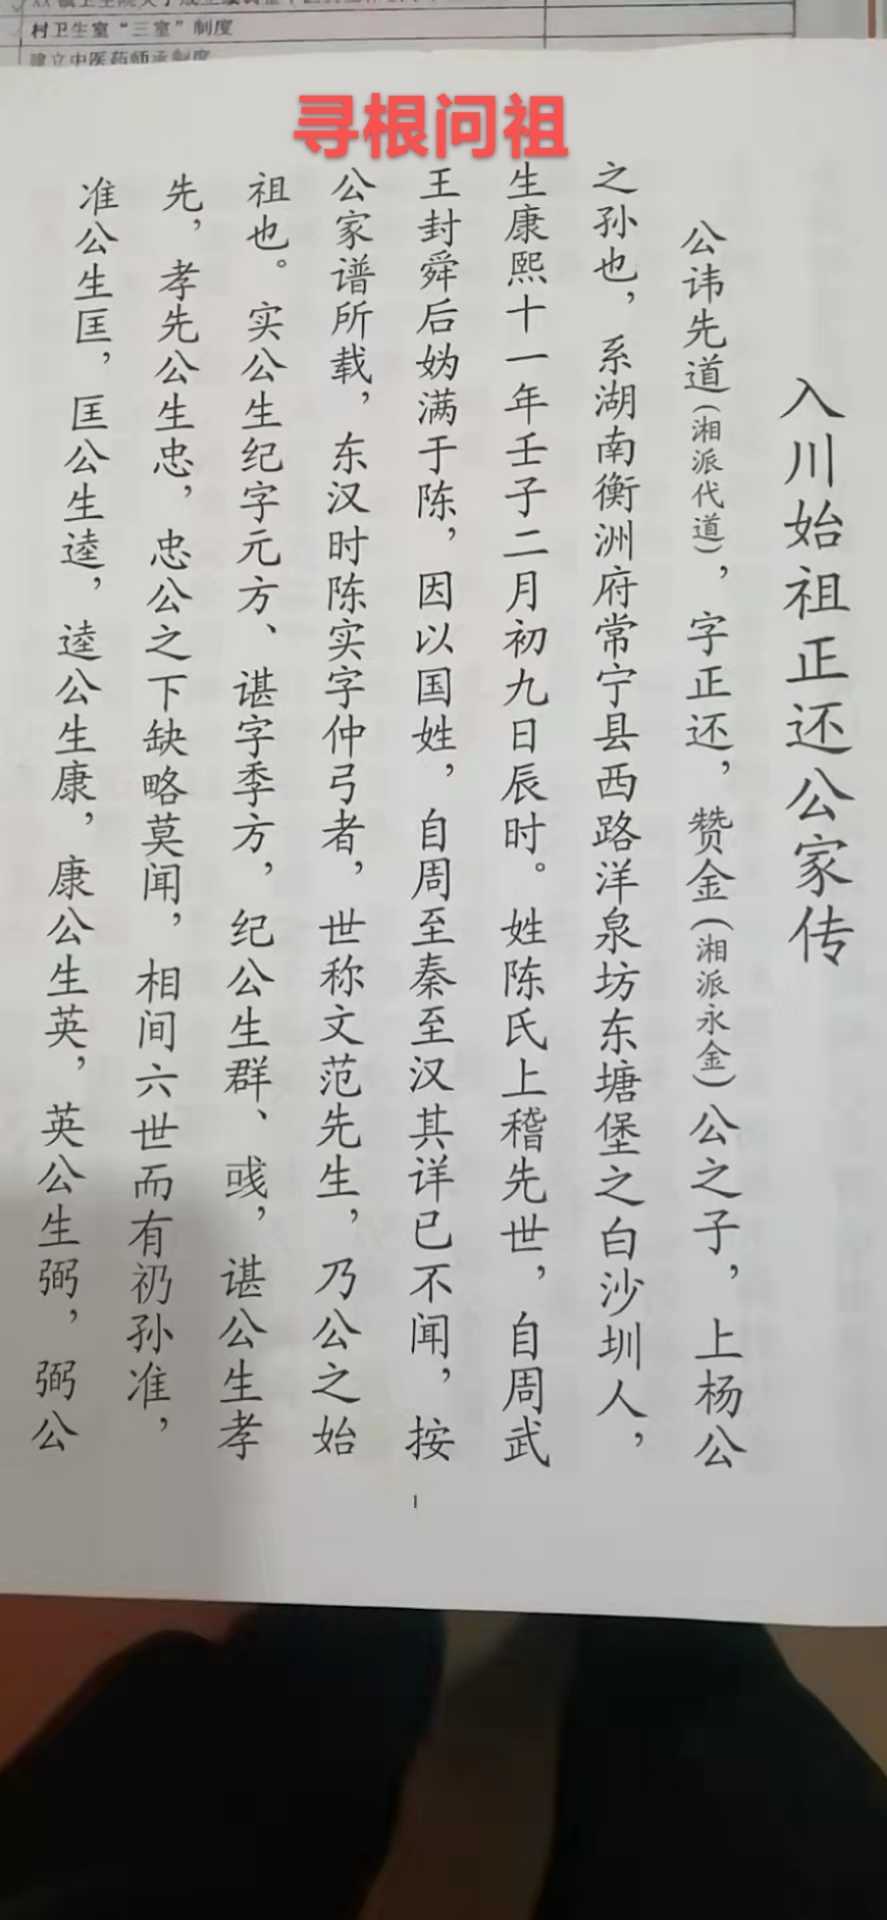 村卫生室“三室”制度
建立中医药师承制度
寻根问祖
入川始祖正还公家传
公讳先道(湘派代道)，字正还，赞金(湘派永金)公之子，上杨公
之孙也，系湖南衡洲府常宁县西路洋泉坊东塘堡之白沙圳人，
生康熙十一年壬子二月初九日辰时。姓陈氏上稽先世，自周武
王封舜后妫满于陈，因以国姓，自周至秦至汉其详已不闻，按
公家谱所载，东汉时陈实字仲弓者，世称文范先生，乃公之始
祖也。实公生纪字元方、谌字季方，纪公生群、彧，谌公生孝
先，孝先公生忠，忠公之下缺略莫闻，相间六世而有礽孙准，
准公生匡，匡公生逵，逵公生康，康公生英，英公生弼，弼公
1